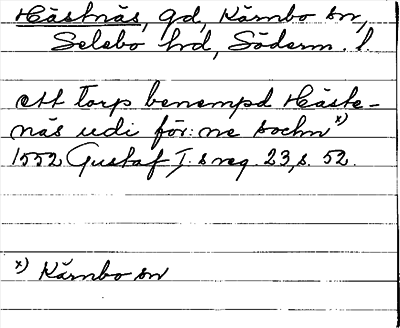 Hästnäs, gd, Kärnbo sn,
Selebo hd, Söderm. l.
ett Torp benempd Häste-
näs udi för:ne sochn x)
1552 Gustaf I:s reg. 23, s. 52.
x) Kärnbo sn